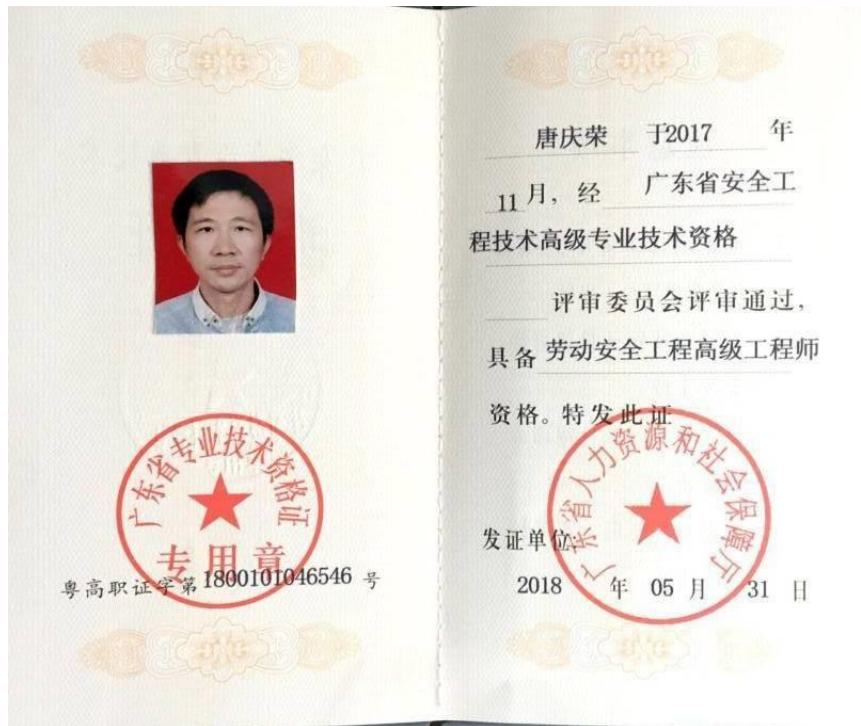 广东省专业技术资格证
专用章
粤高职证字第1800101046546号
唐庆荣 于2017 年
11月，经 广东省安全工
程技术高级专业技术资格
评审委员会评审通过，
具备 劳动安全工程高级工程师
资格。特发此证
广东省人力资源和社会保障厅
发证单位
2018 年 05 月 31 日